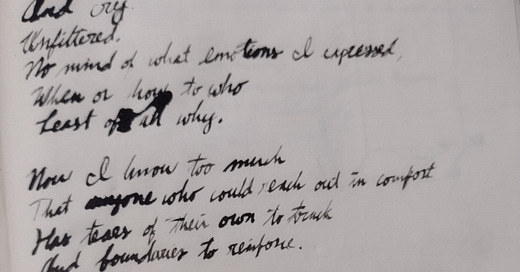 And cry.
Unfiltered.
No mind of what emotions I expressed,
When or how to who
Least of all why.
Now I know too much
That anyone who could reach out in comfort
Has tears of their own to
And boundaries to reinforse.